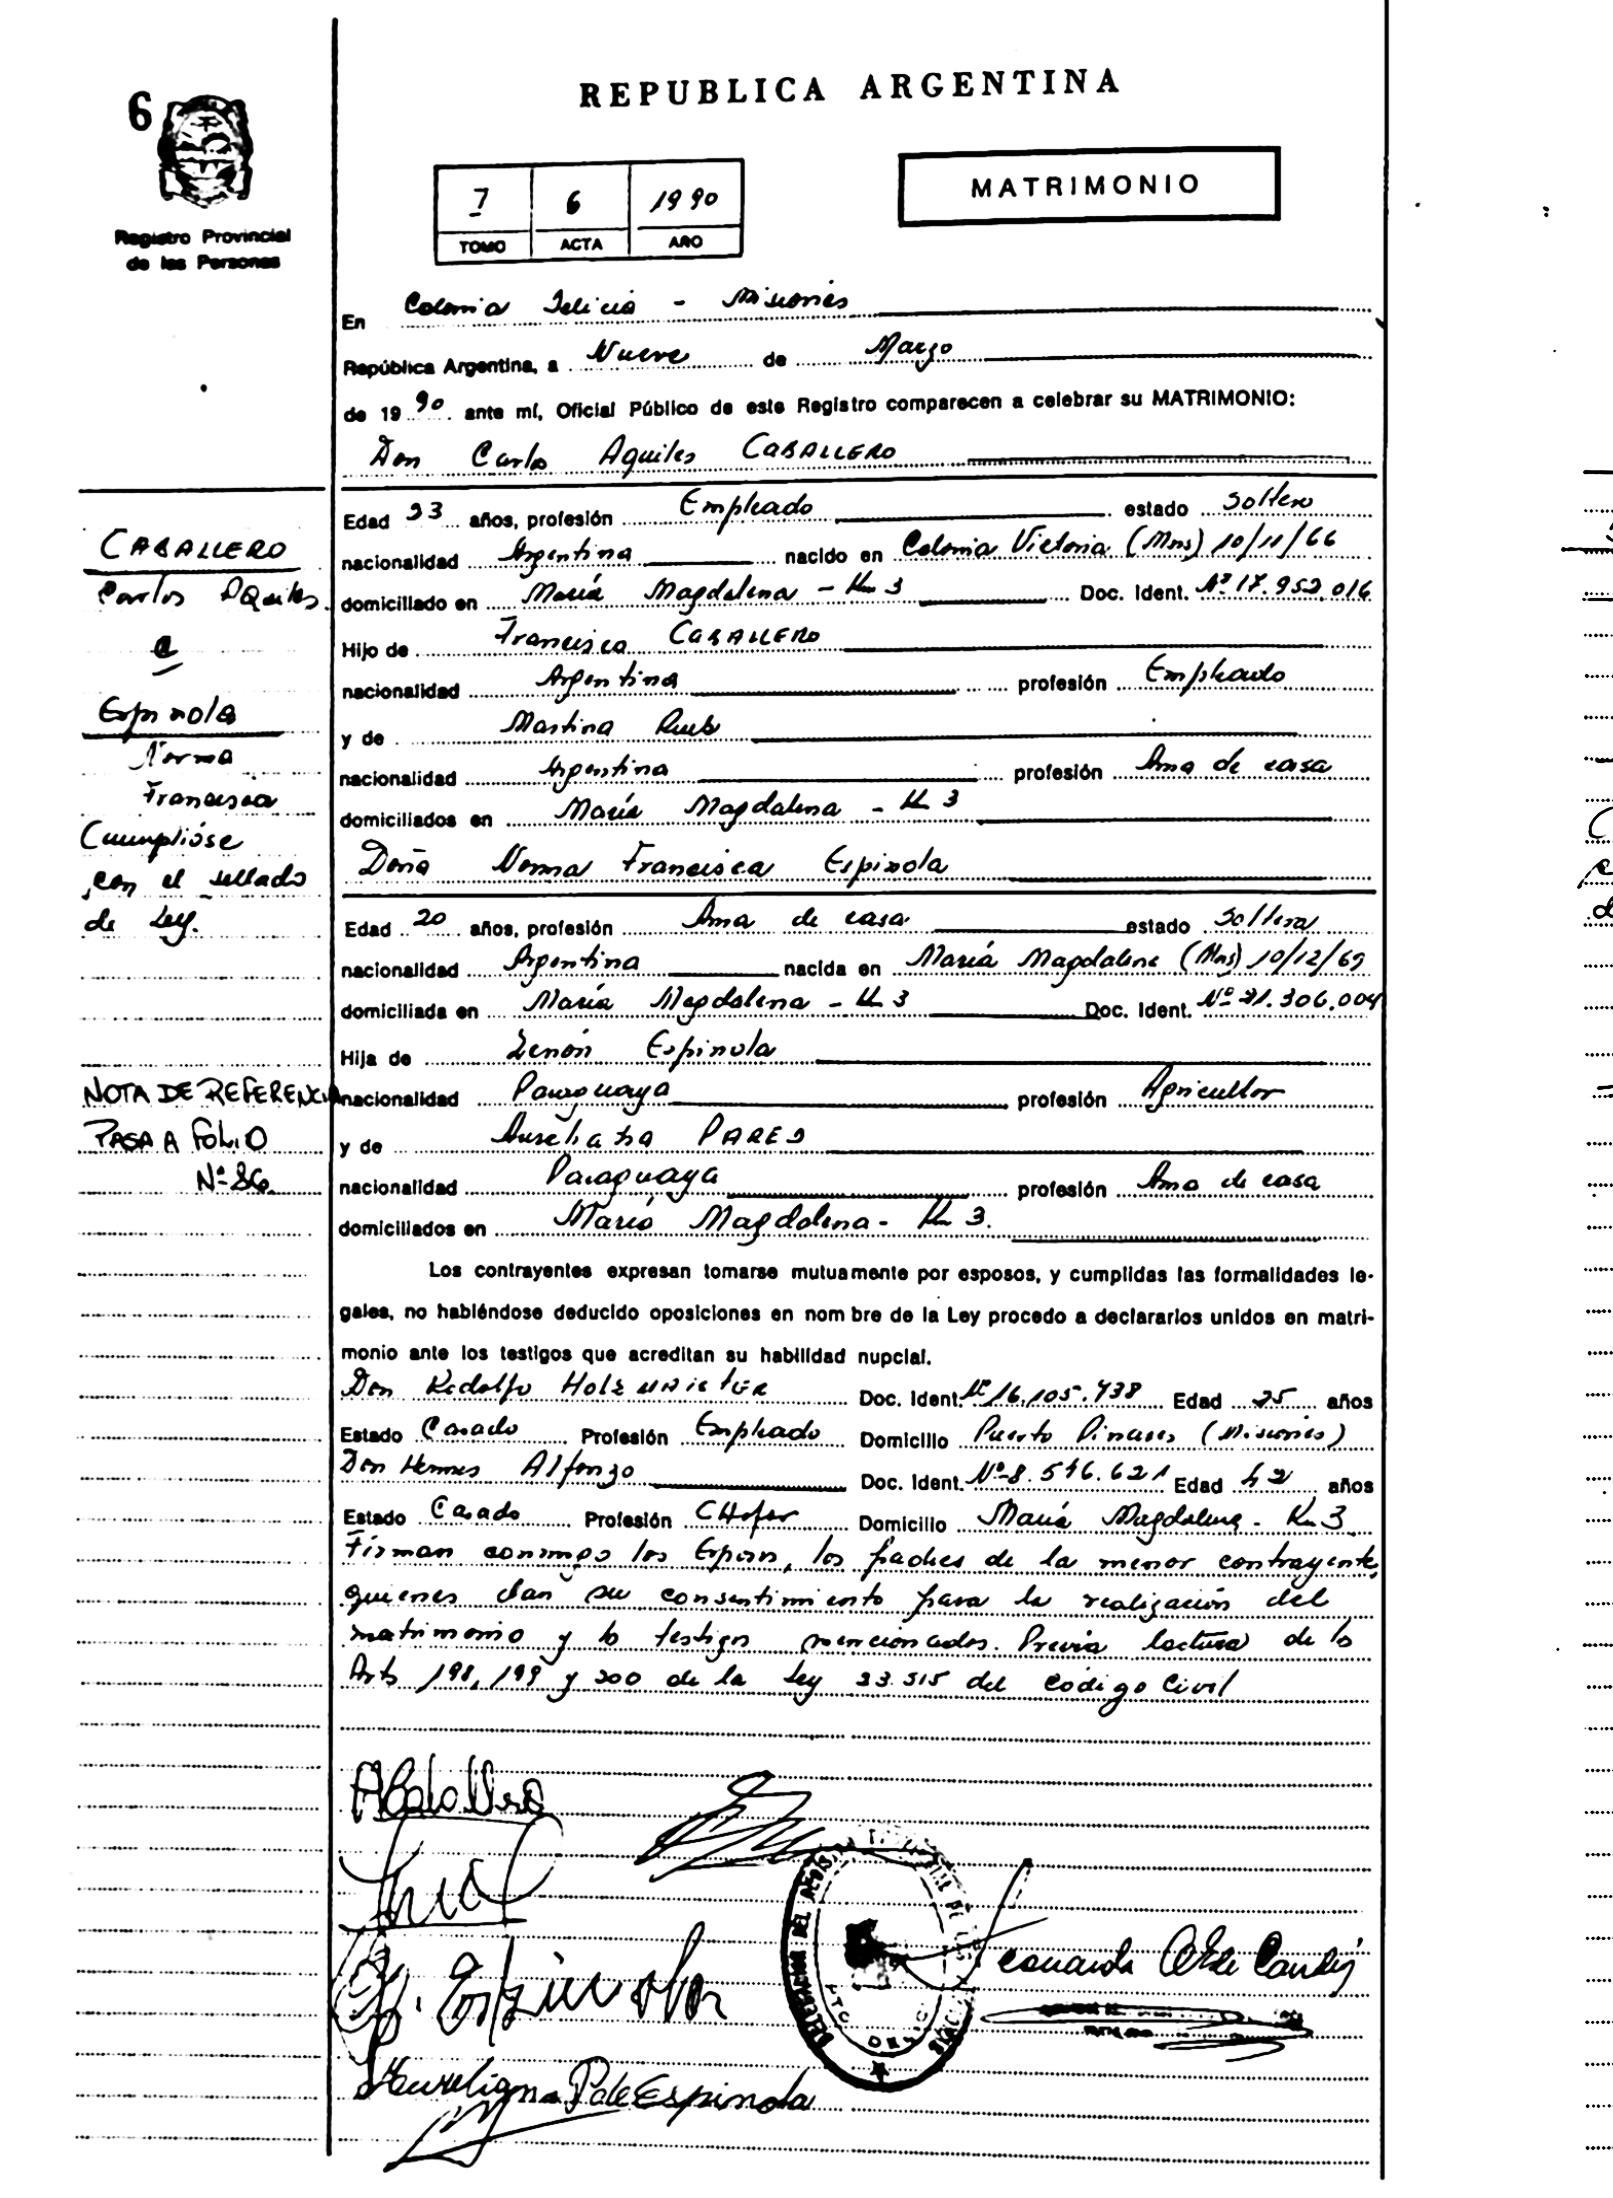 6
REPUBLICA ARGENTINA
MATRIMONIO
7 6 1990
TOMO ACTA AÑO
Registro Provincial
de las Personas
En Colonia Delicia - Misiones
República Argentina, a Nueve de Marzo
de 1990 ante mí, Oficial Público de este Registro comparecen a celebrar su MATRIMONIO:
Don Carlos Aquiles CABALLERO
Edad 23 años, profesión Empleado estado Soltero
nacionalidad Argentina nacido en Colonia Victoria (Mnes) 10/11/66
domiciliado en María Magdalena - Km 3 Doc. Ident. Nº 17.952.016
Hijo de Francisco CABALLERO
nacionalidad Argentina profesión Empleado
y de Martina
nacionalidad Argentina profesión Ama de casa
domiciliados en María Magdalena - Km 3
Doña Norma Francisca Espinola
Edad 20 años, profesión Ama de casa estado Soltera
nacionalidad Argentina nacida en María Magdalena (Mns) 10/12/69
domiciliada en María Magdalena - Km 3 Doc. Ident. Nº 21.306.004
Hija de Zenón Espinola
nacionalidad Paraguaya profesión Agricultor
y de PARED
nacionalidad Paraguaya profesión Ama de casa
domiciliados en María Magdalena - Km 3.
Los contrayentes expresan tomarse mutuamente por esposos, y cumplidas las formalidades le-
gales, no habiéndose deducido oposiciones en nom bre de la Ley procedo a declararlos unidos en matri-
monio ante los testigos que acreditan su habilidad nupcial.
Don Rodolfo Doc. Ident. Nº 16.105.738 Edad 25 años
Estado Casado Profesión Empleado Domicilio Puerto Pinares (Misiones)
Don Hermes Alfonzo Doc. Ident. Nº 8.546.621 Edad 42 años
Estado Casado Profesión CHofer Domicilio María Magdalena - Km 3
Firman conmigo los Esposos, los padres de la menor contrayente,
quienes dan su consentimiento para la realización del
matrimonio y lo testigos mencionados. Previa lectura de lo
Arts 198, 199 y 200 de la Ley 23.515 del código Civil
CABALLERO
Carlos Aquiles
c
Espinola
Norma
Francisca
Cúmplióse
con el sellado
de Ley.
NOTA DE REFERENCIA
PASA A FOLIO
Nº 86.
ACaballero
Espinola
Aureligna P de Espinola